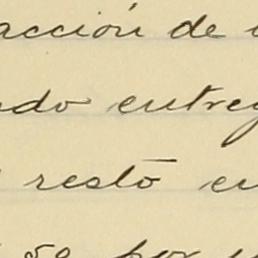 acción de
ado entreg
resto en
50 por